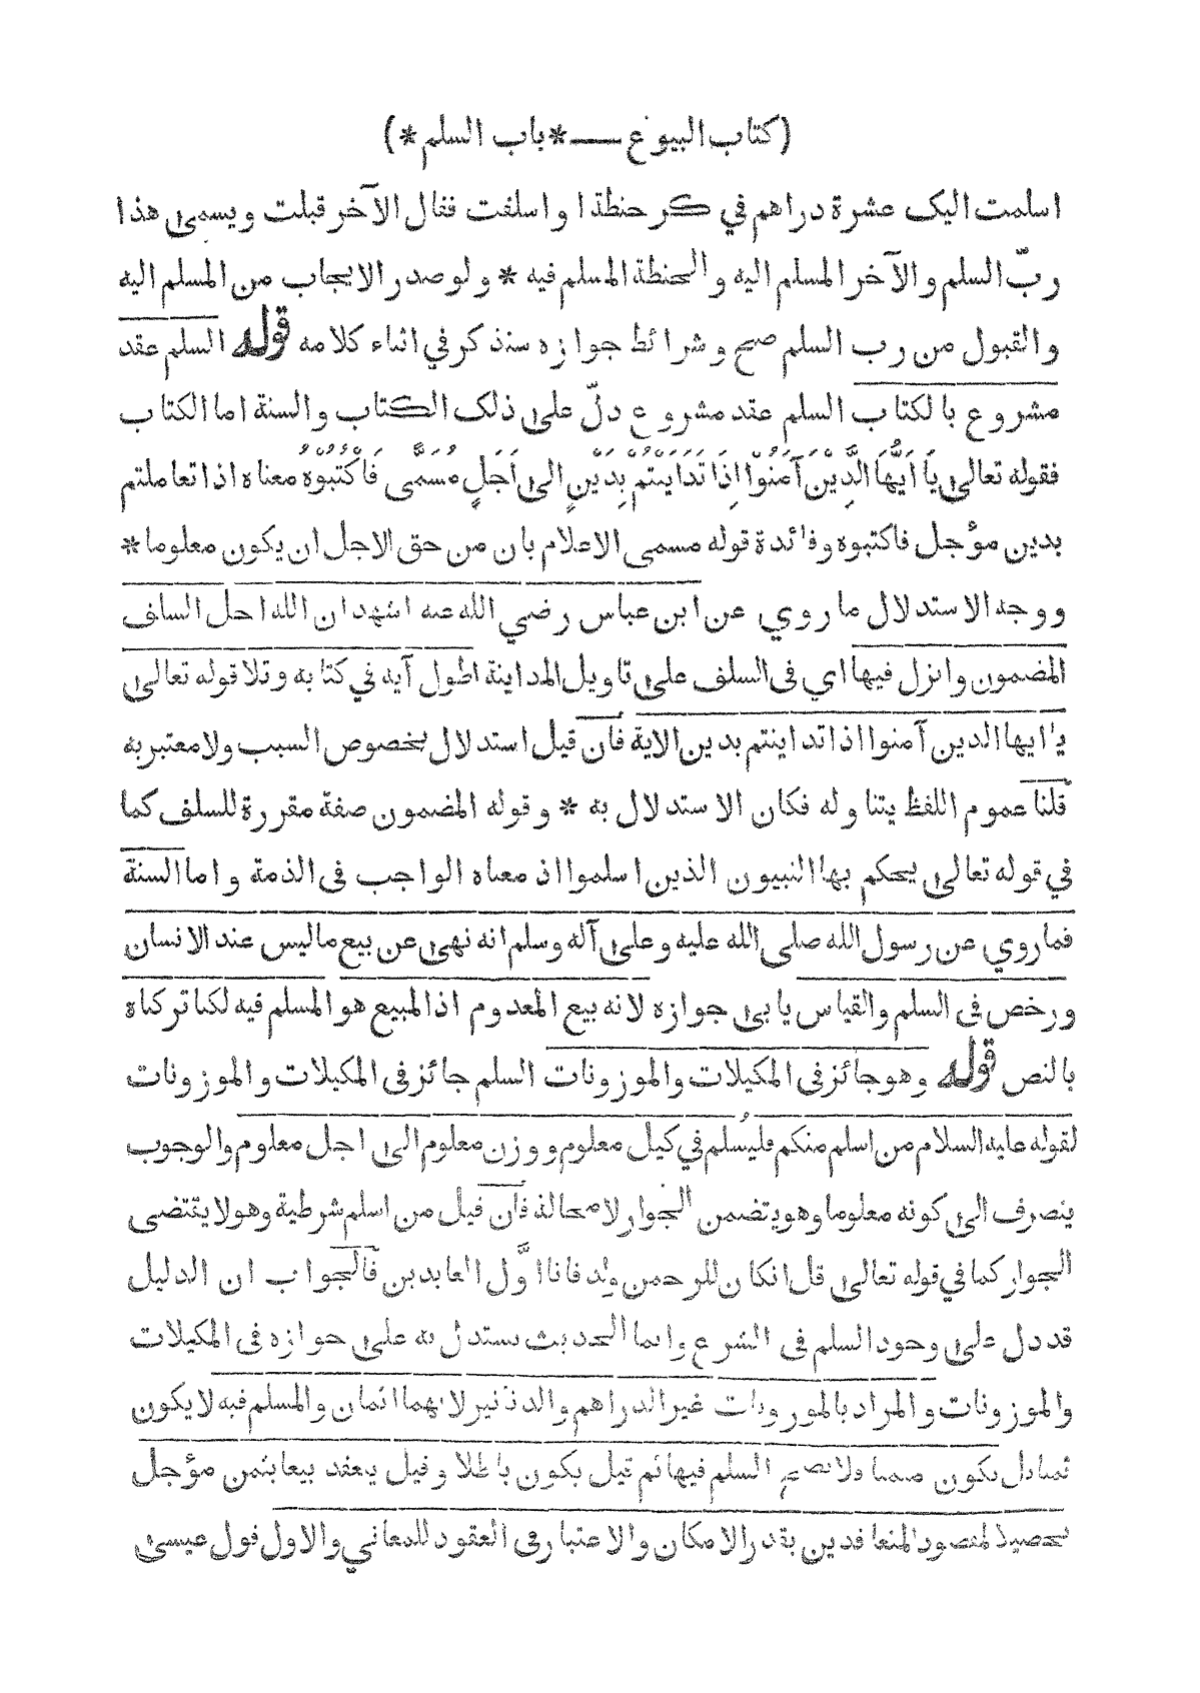 (كتاب البيوع ــــ *باب السلم*)
اسلمت اليک عشرة دراهم في كر حنطة او اسلفت فقال الآخر قبلت ويسمى هذا
ربّ السلم والآخر المسلم اليه والحنطة المسلم فيه * ولو صدر الايجاب من المسلم اليه
والقبول من رب السلم صح وشرائط جوازه سنذكر في اثناء كلامه قوله السلم عقد
مشروع بالكتاب السلم عقد مشروع دلّ على ذلک الكتاب والسنة اما الكتاب
فقوله تعالى يَا اَيُّهَا الَّذِيْنَ آمَنُوْا اِذَا تَدَايَنْتُمْ بِدَيْنٍ الى اَجَلٍ مُسَمًّى فَاكْتُبُوْهُ معناه اذا تعاملتم
بدين مؤجل فاكتبوه وفائدة قوله مسمى الاعلام بان من حق الاجل ان يكون معلوما *
ووجه الاستدلال ما روي عن ابن عباس رضي الله عنه اشهد ان الله احل السلف
المضمون وانزل فيها اي فى السلف على تاويل المداينة اطول آيه في كتابه وتلا قوله تعالى
يا ايها الدين آمنوا اذا تداينتم بدين الاية فان قيل استدلال بخصوص السبب ولا معتبر به
قلنا عموم اللفظ يتناوله فكان الاستدلال به * وقوله المضمون صفة مقررة للسلف كما
في قوله تعالى يحكم بها النبيون الذين اسلموا اذ معناه الواجب فى الذمة واما السنة
فما روي عن رسول الله صلى الله عليه وعلى آله وسلم انه نهى عن بيع ما ليس عند الانسان
ورخص فى السلم والقياس يابى جوازه لانه بيع المعدوم اذ المبيع هو المسلم فيه لكنا تركناه
بالنص قوله وهو جائز فى المكيلات والموزونات السلم جائز فى المكيلات والموزونات
لقوله عليه السلام من اسلم منكم فليُسلم في كيل معلوم ووزن معلوم الى اجل معلوم والوجوب
ينصرف الى كونه معلوما وهو يتضمن الجواز لا محالة فان قيل من اسلم شرطية وهو لا يقتضى
الجواز كما في قوله تعالى قل ان كان للرحمن ولد فانا اوَّل العابدين فالجواب ان الدليل
قد دل على وجود السلم فى الشرع وانما الحديث يستدل به على جوازه فى المكيلات
والموزونات والمراد بالموزونات غير الدراهم والدنانير لانهما اثمان والمسلم فيه لا يكون
ثمنا بل يكون مثمنا فلا يصح السلم فيها ثم قيل يكون باطلا وقيل ينعقد بيعا بثمن مؤجل
تحصيلا لمقصود المتعاقدين بقدر الامكان والاعتبار فى العقود للمعاني والاول قول عيسى